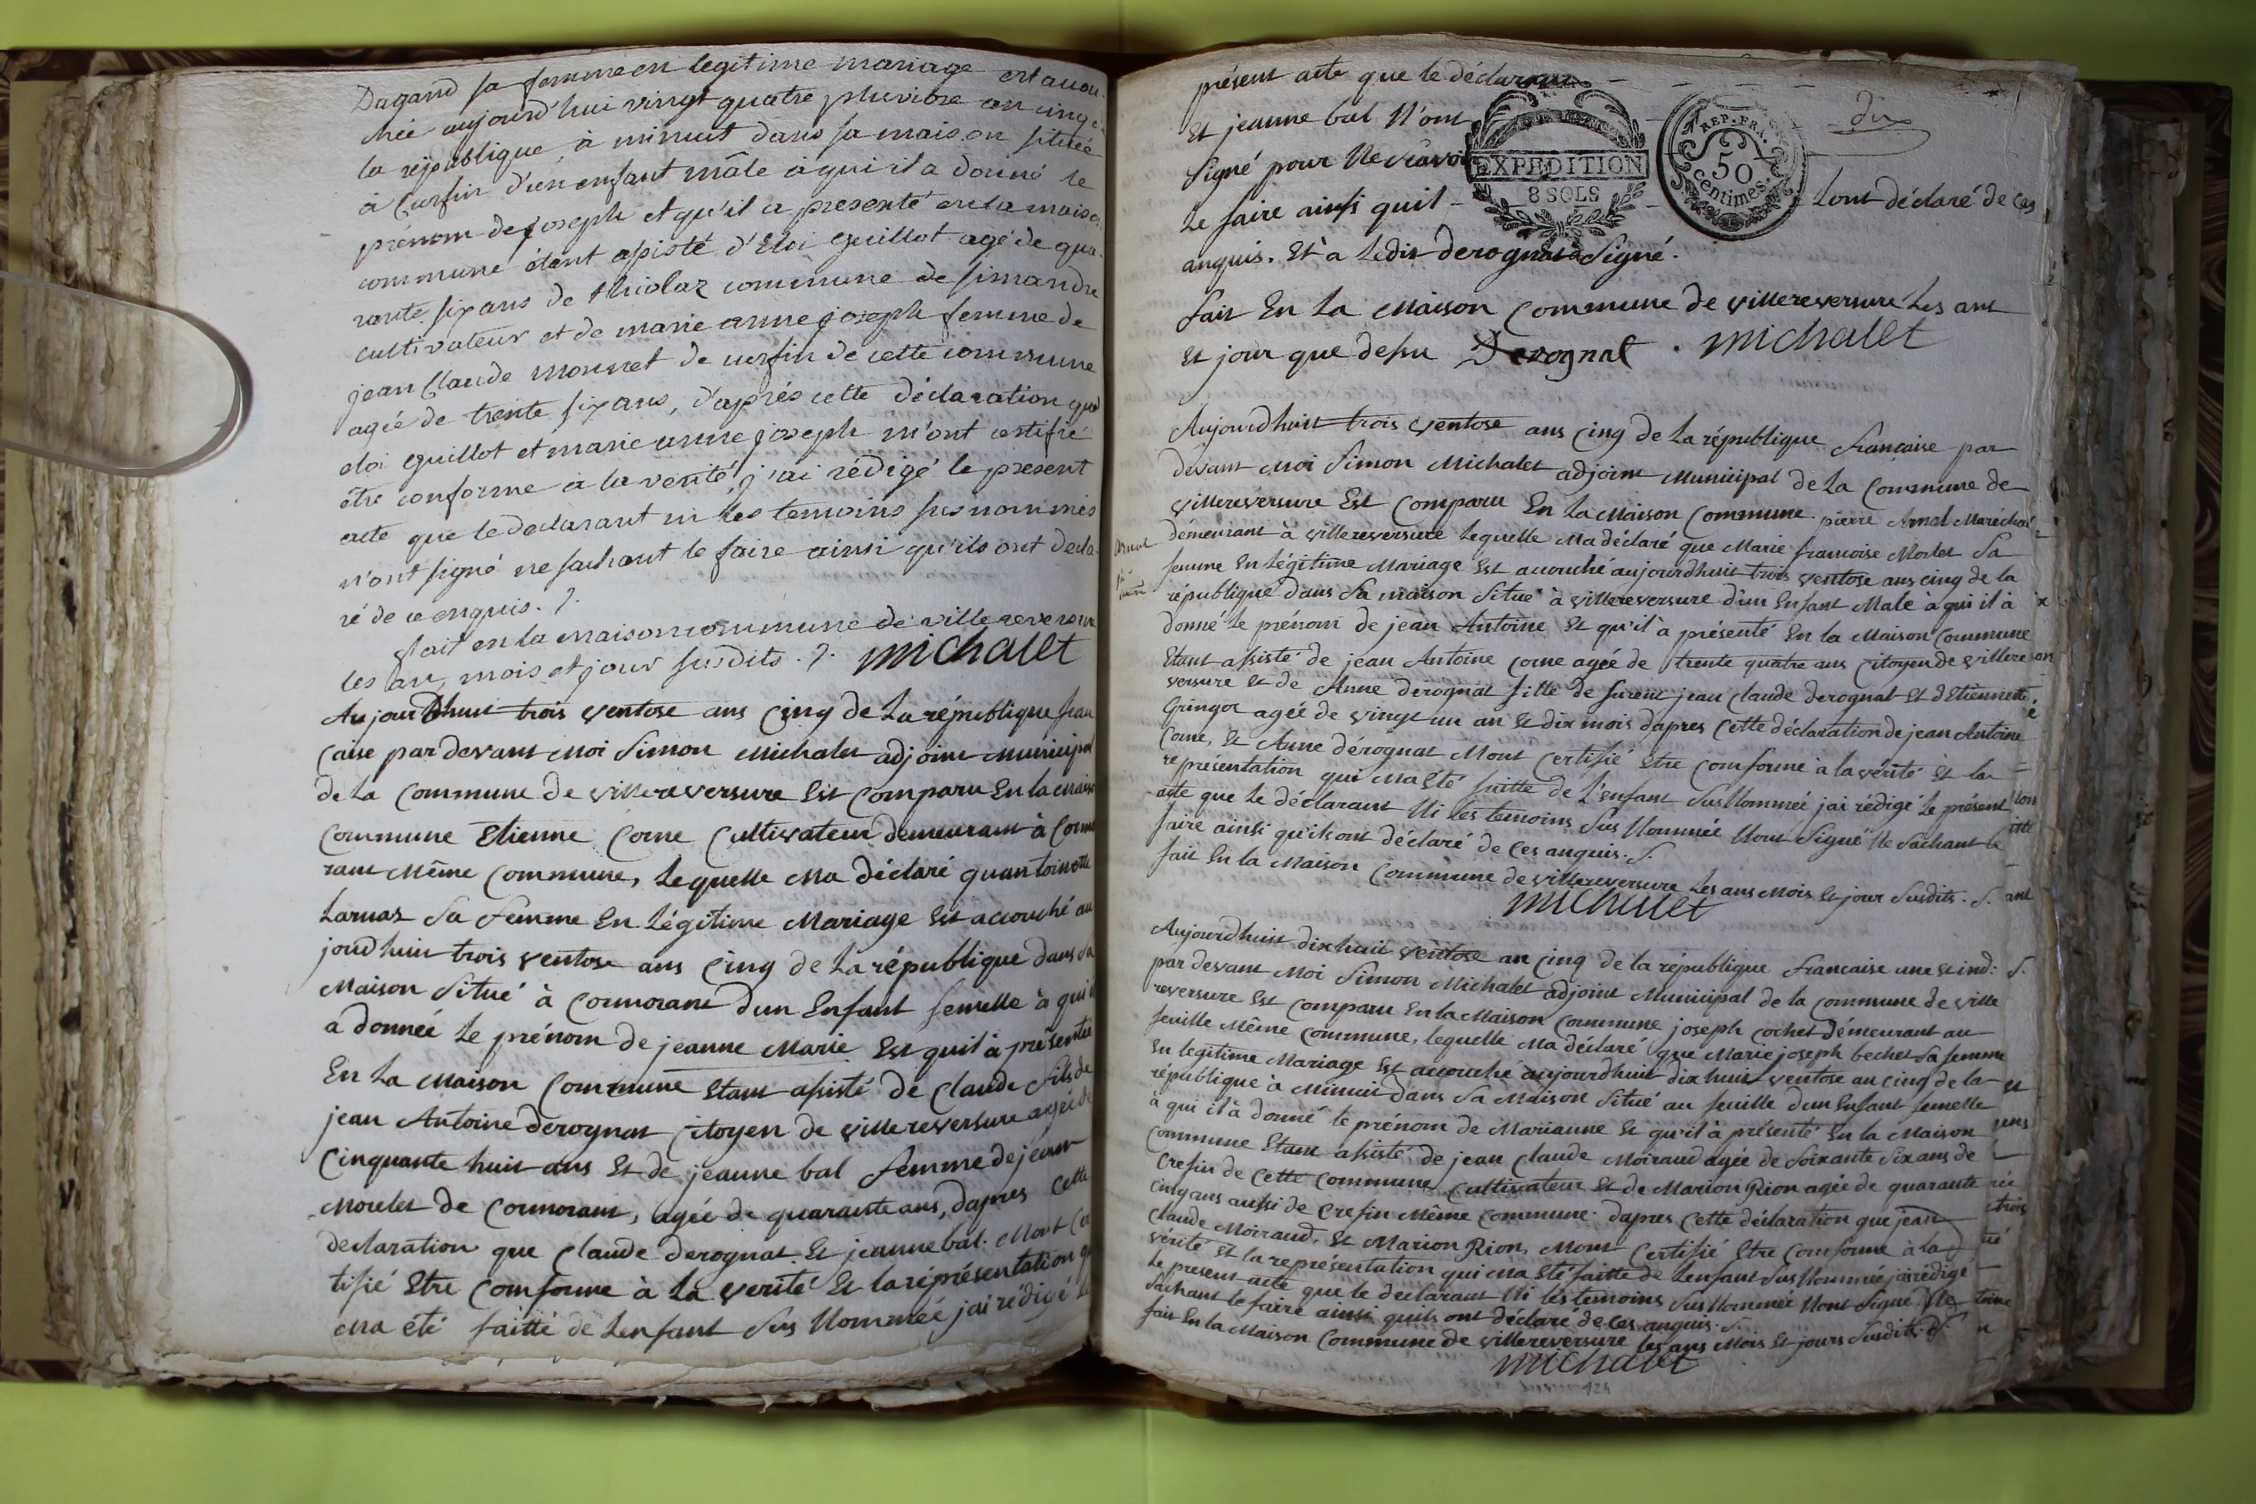 Dagand sa femme en legitime mariage est accou-
chée aujourd'hui vingt quatre pluviose an cinq
la république, à minuit dans sa maison située
à Curfin d'un enfant mâle à qui il a donné le
prénom de joseph et qu'il a presenté en la maison
commune étant assisté d'Eloi Guillot agé de qua-
rante six ans de thiolaz commune de simandre
cultivateur et de marie anne joseph femme de
jean Claude monnet de curfin de cette commune
agée de trente six ans, d'après cette déclaration que
eloi Guillot et marie anne joseph m'ont certifié
être conforme à la verité, j'ai rédigé le present
acte que le declarant ni les temoins sus nommés
n'ont signé ne sachant le faire ainsi qu'ils ont decla-
ré de ce enquis.
fait en la maison commune de villereversure
les an, mois et jour susdits. michalet
Aujourdhuit trois ventose ans Cinq de la république fran
caise par devant Moi Simon Michalet adjoint Municipal
de La Commune de villereversure Est Comparu En La Maison
Commune Etienne Corne Cultivateur demeurant à Cormo
rant Même Commune, Lequelle Ma déclaré quantoinette
Larnaz Sa Femme En Légitime Mariage Est accouché au
jourdhuit trois ventose ans Cinq de La république dans Sa
Maison Situé à Cormorant dun Enfant femelle à qui il
a donnée Le prénom de jeanne Marie Est quil à présentée
En La Maison Commune Etant assisté de Claude fils de
jean Antoine derognat Citoyen de villereversure agée de
Cinquante huit ans Et de jeanne bal femme de jean
Morelet de Cormorant, agée de quarante ans, dapres Cette
déclaration que Claude derognat Et jeanne bal. Mont Cer
tifié Etre Comforme à La verité Et la réprésentation qui
Ma été faitte de Lenfant Sus Nommée jai rédigé Le
présent acte que le déclarant
Et jeanne bal N'ont
Signé pour Ne Savoir
Le faire ainsi quil
EXPEDITION
8 SOLS
REP. FRA.
50
centimes.
dix
Lont déclaré de Ces
anquis. Et à Ledit derognat Signé.
fait En La Maison Commune de villereversure Les ans
Et jour que dessu Derognat . michalet
Aujourdhuit trois ventose ans Cinq de La république francaise par
devant Moi Simon Michalet adjoint Municipal de La Commune de
villereversure Est Comparu En La Maison Commune pierre Arnal Maréchal
démeurant à villereversure Lequelle Ma déclaré que Marie francoise Morlet Sa
femme En Légitime Mariage Est accouché aujourdhuit trois ventose ans cinq de la
république dans Sa maison Situé à villereversure d'un Enfant Male à qui il à
donné Le prénom de jean Antoine Et qu'il à présenté En la Maison Commune
Etant assisté de jean Antoine Corne agée de trente quatre ans Citoyen de villere
versure Et de Anne derognat fille de furent jean Claude derognat Et d'Etiennette
Gringoz agée de vingt un an Et dix mois dapres Cette déclaration de jean Antoine
Corne, Et Anne dérognat Mont Certifié Etre Comforme à la vérité Et la
représentation qui Ma Eté faitte de L'enfant Sus Nommée jai rédigé Le présent
acte que Le déclarant Ni Les temoins Sus Nommée Nont Signé Ne Sachant Le
faire ainsi qu'ils ont déclaré de Ces anquis. S.
fait En la Maison Commune de villereversure Les ans Mois Et jour Susdits. S.
michalet
Aujourdhuit dix huit ventose an Cinq de la république francaise une Et ind:
par devant Moi Simon Michalet adjoint Municipal de la Commune de ville
reversure Est Comparu En La Maison Commune joseph Cochet démeurant au
feuille Même Commune, lequelle Ma déclaré que Marie joseph bechet Sa femme
En legitime Mariage Est accouché aujourdhuit dix huit ventose an cinq de la
république à Minuit dans Sa Maison Situé au feuille dun Enfant femelle
à qui il à donné le prénom de Marianne Et qu'il à présenté En la Maison
Commune Etant assisté de jean Claude Moiraud agée de Soixante Six ans de
Crefin de Cette Commune, Cultivateur Et de Marion Rion agée de quarante
Cinq ans aussi de Crefin Même Commune. dapres Cette déclaration que jean
Claude Moiraud, Et Marion Rion, Mont Certifié Etre Comforme à la
vérité Et la représentation qui Ma Eté faitte de Lenfant Sus Nommée jai rédigé
Le present acte que le declarant Ni les temoins Sus Nommée Nont Signé Ne
Sachant le faire ainsi quils ont déclaré de Ces anquis. S.
fait En la Maison Commune de villereversure les ans Mois Et jours Susdits. S.
michalet
124